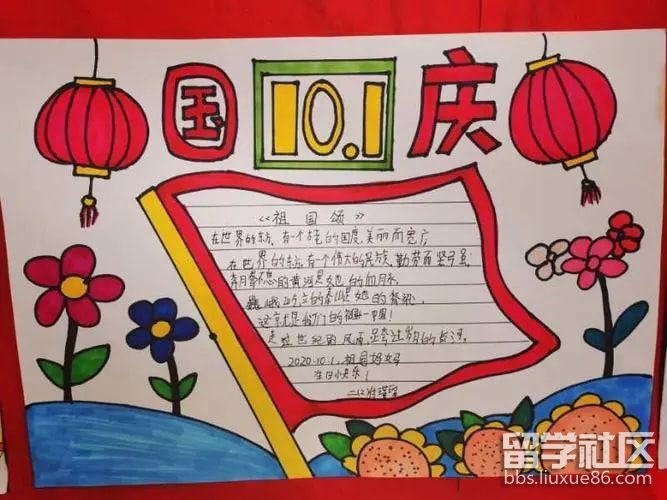 国 10.1 庆
《祖国颂》
在世界的东方,有一个古老的国度,美丽而宽广
在世界的东方,有一个伟大的民族,勤劳而坚强
的黄河是她的血脉
巍峨屹立的泰山是她的脊梁
这就是我们的祖国—中国!
走过世纪的风雨,跨过岁月的长河。
2020.10.1,祖国妈妈
生日快乐!
留学社区
bbs.liuxue86.com